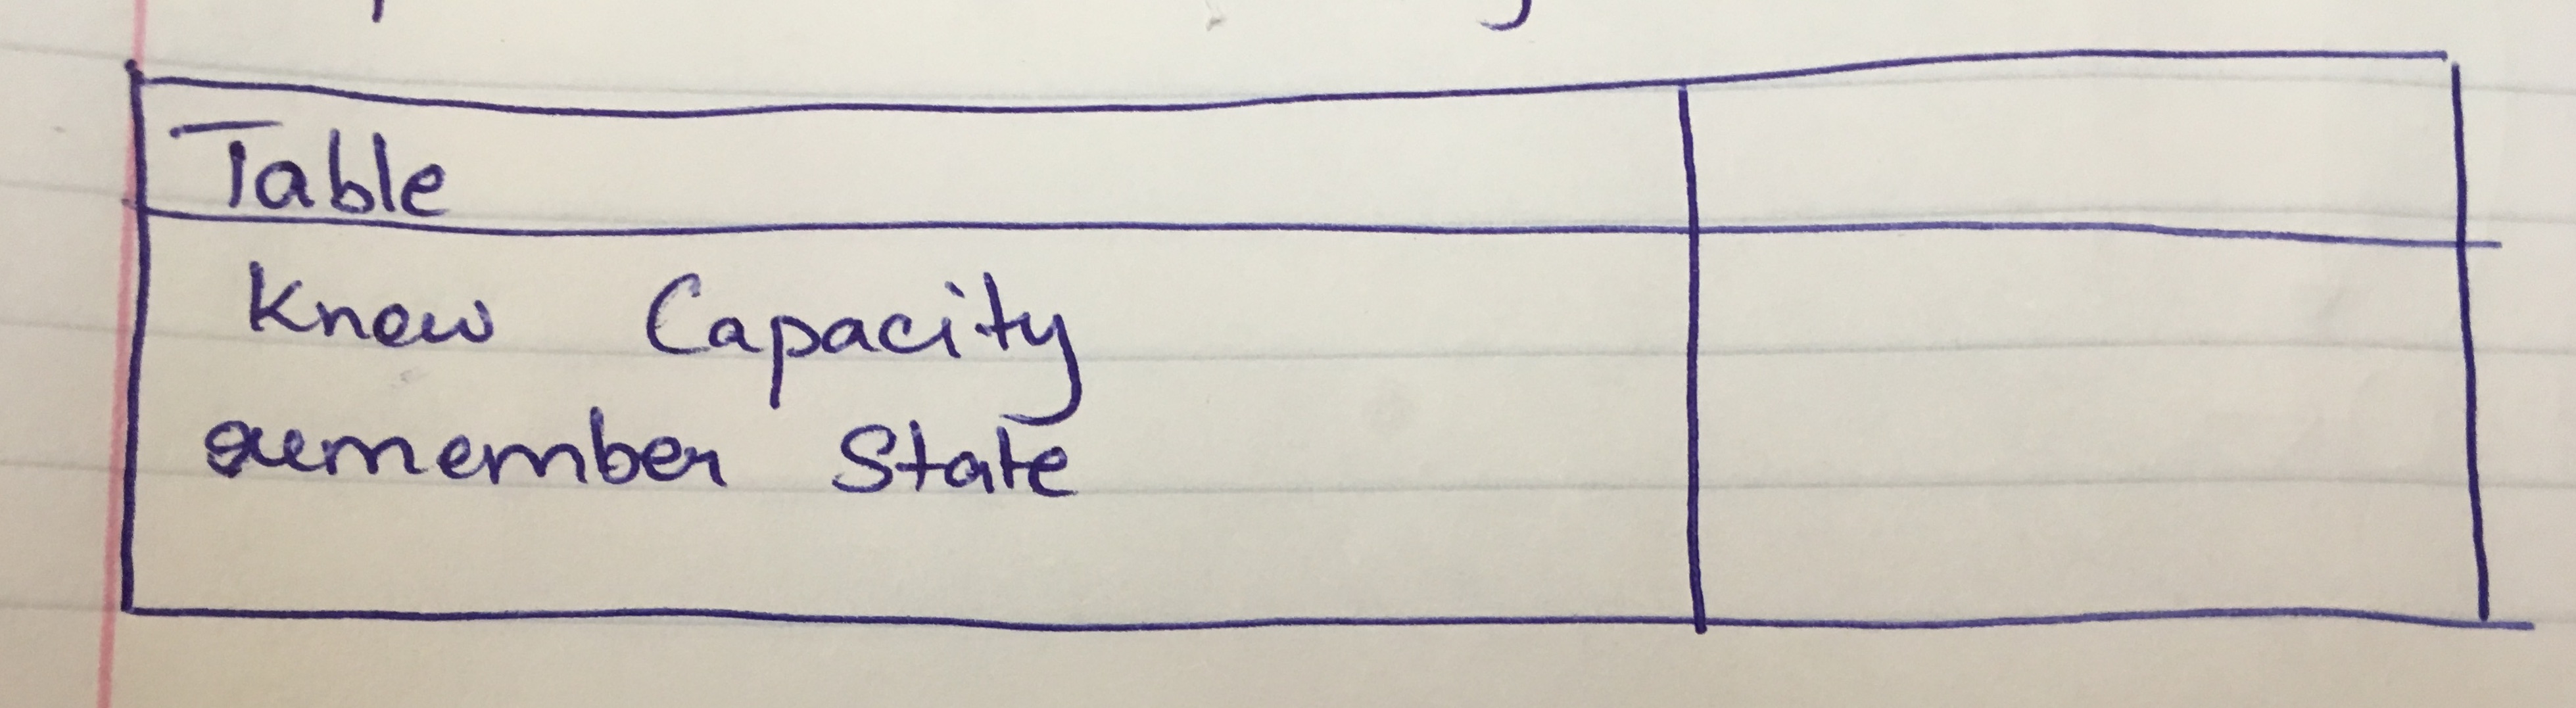 Table
Know Capacity
remember State